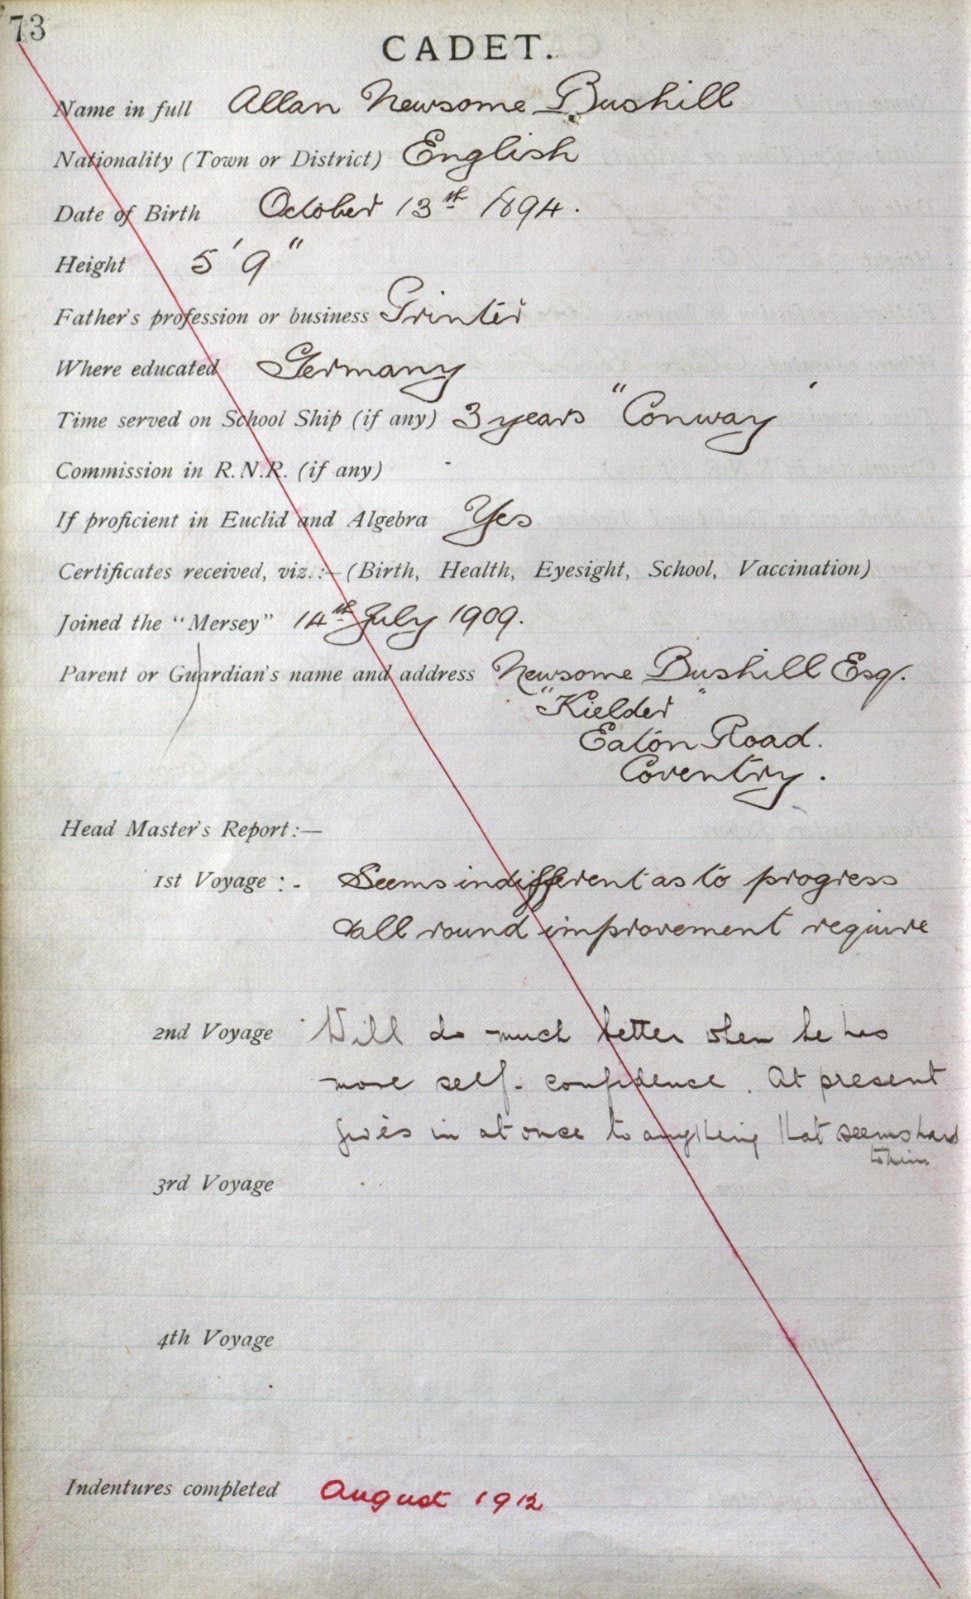 73
CADET.
Name in full Allan Newsome Bushill
Nationality (Town or District) English
Date of Birth October 13th 1894.
Height 5' 9"
Father's profession or business Printer
Where educated Germany
Time served on School Ship (if any) 3 years "Conway"
Commission in R.N.R. (if any) -
If proficient in Euclid and Algebra Yes
Certificates received, viz.:—(Birth, Health, Eyesight, School, Vaccination)
Joined the "Mersey" 14th July 1909.
Parent or Guardian's name and address Newsome Bushill Esq.
"Kielder"
Eaton Road.
Coventry.
Head Master's Report:—
1st Voyage :- Seems indifferent as to progress
& all round improvement require
2nd Voyage Will do much better when he has
more self-confidence. At present
gives in at once to anything that seems hard
to him
3rd Voyage
4th Voyage
Indentures completed August 1912